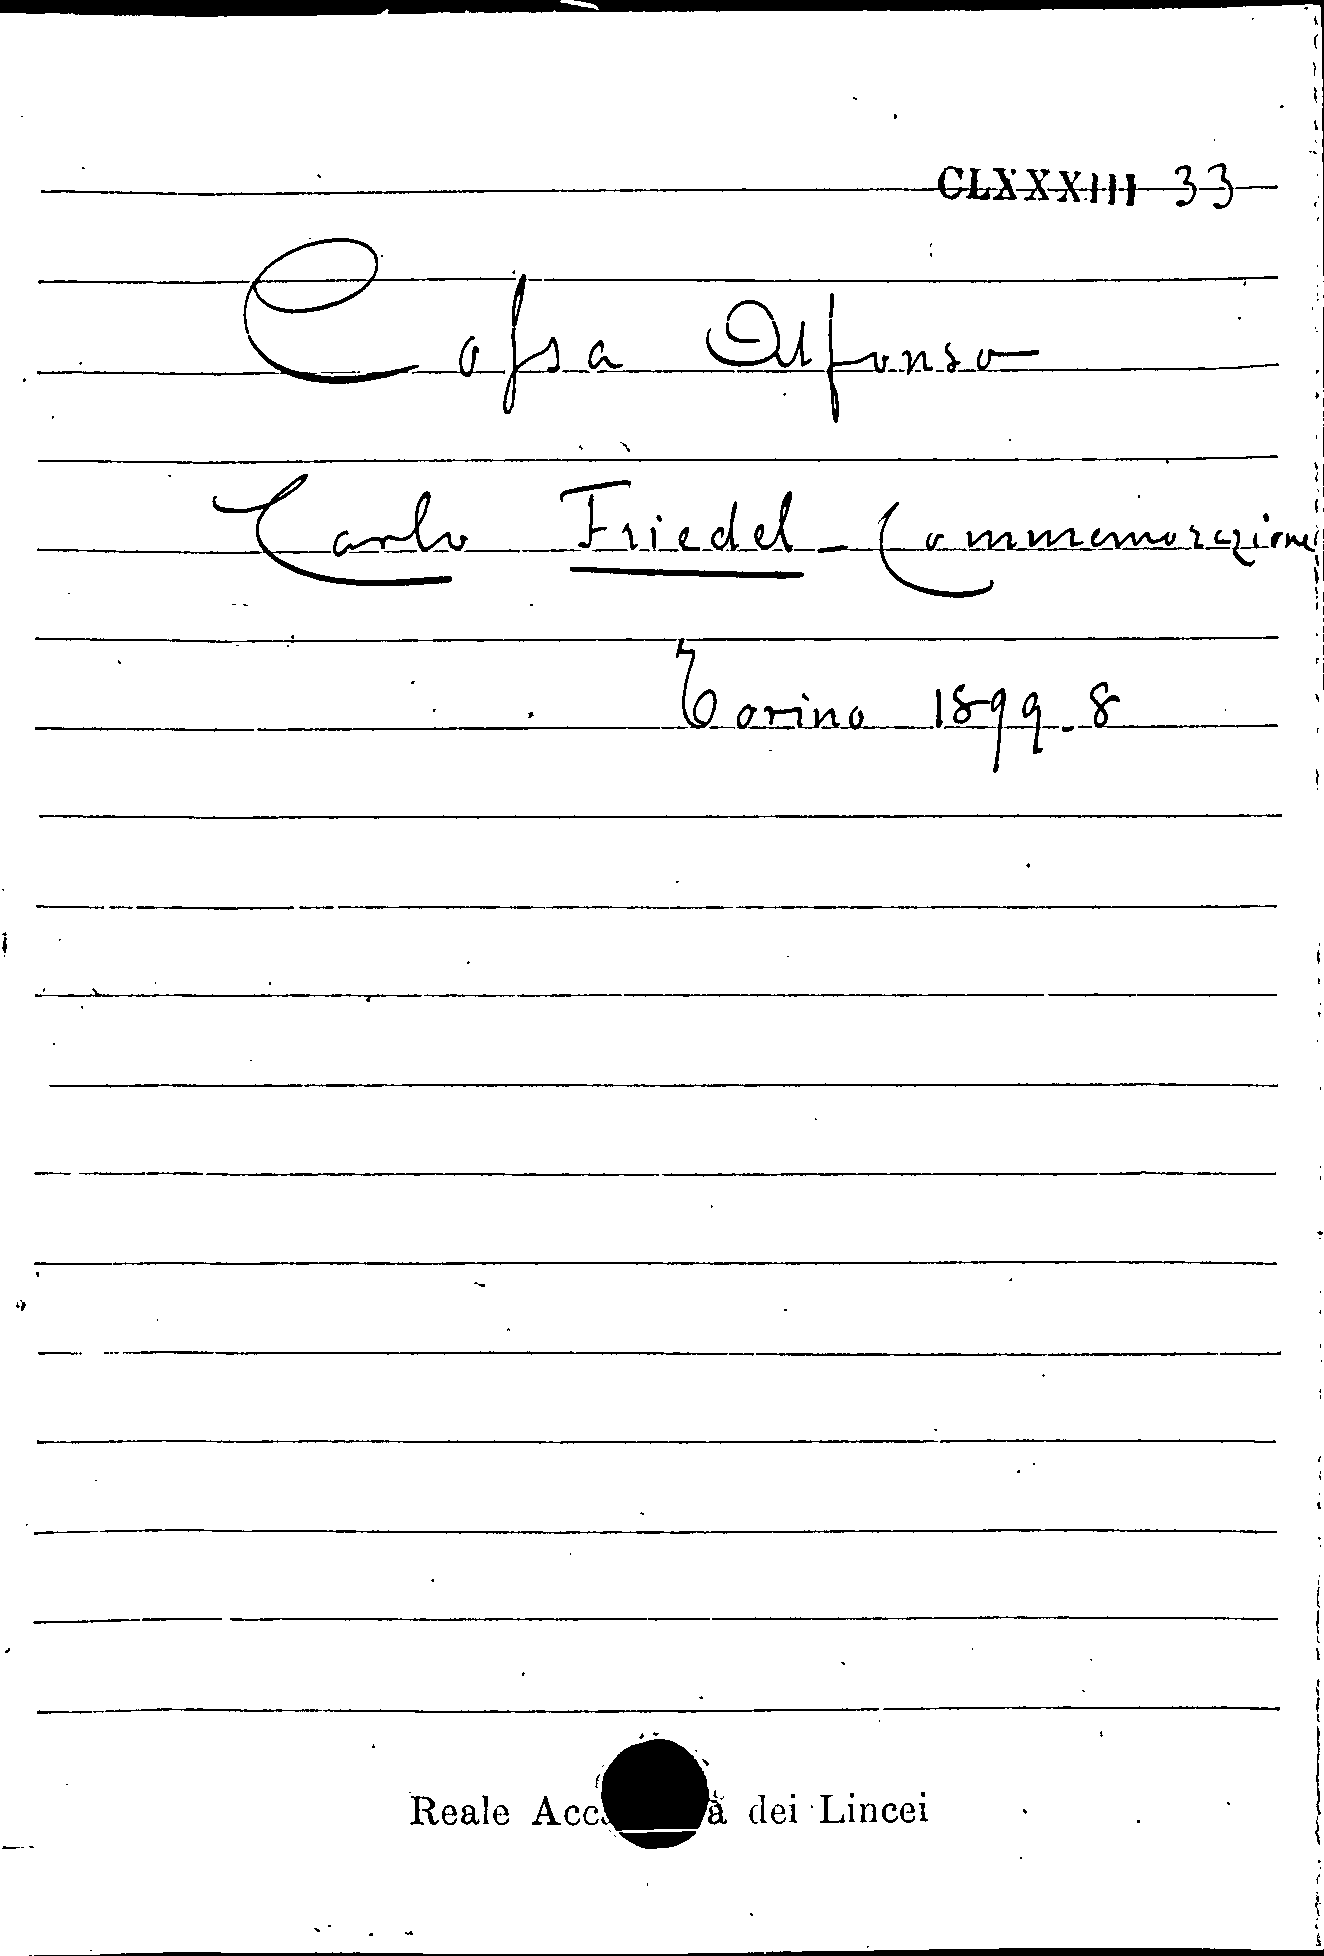 CLXXXIII 33
Cossa Alfonso
Carlo Friedel - Commemorazione
Torino 1899. 8
Reale Acca dei Lincei